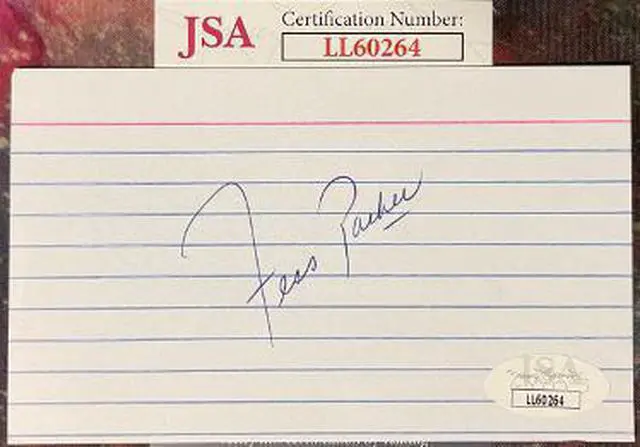 JSA
Certification Number:
LL60264
Fess Parker
JSA
LL60264